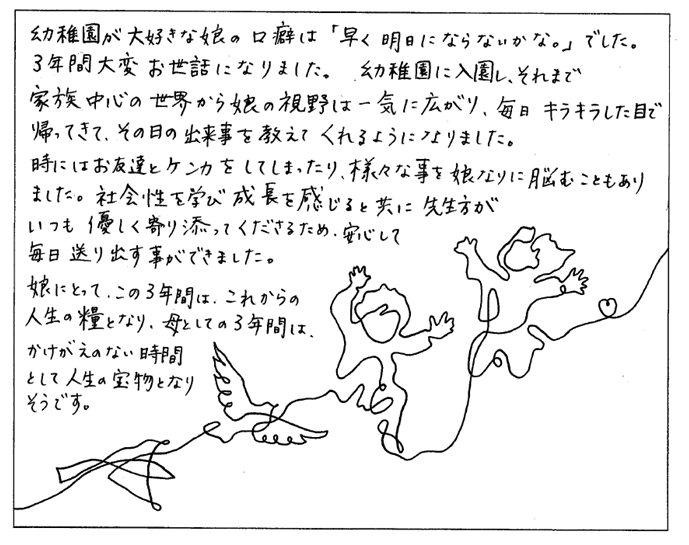 幼稚園が大好きな娘の口癖は「早く明日にならないかな。」でした。
3年間大変お世話になりました。 幼稚園に入園し、それまで
家族中心の世界から娘の視野は一気に広がり、毎日キラキラした目で
帰ってきて、その日の出来事を教えてくれるようになりました。
時にはお友達とケンカをしてしまったり、様々な事を娘なりに悩むこともあり
ました。社会性を学び成長を感じると共に先生方が
いつも優しく寄り添ってくださるため、安心して
毎日送り出す事ができました。
娘にとって、この3年間は、これからの
人生の糧となり、母としての3年間は、
かけがえのない時間
として人生の宝物となり
そうです。